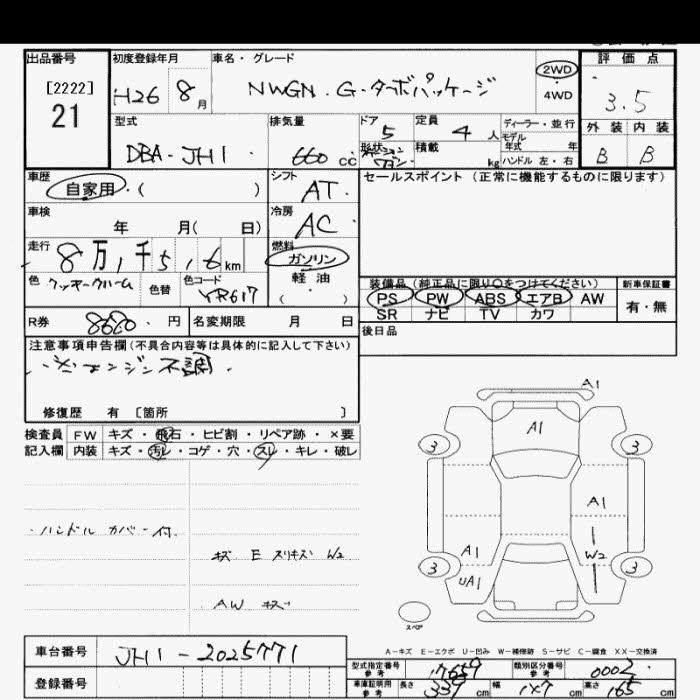 出品番号
[2222]
21
初度登録年月
H26 8月
車名・グレード
NWGN. G・ターボパッケージ
2WD
・
4WD
評価点
3.5
外装 内装
B B
型式
DBA-JH1
排気量
660 cc
ドア
5
定員
4 人
ディーラー・並行
モデル
年式 年
形状
積載 kg
ハンドル 左・右
車歴
自家用・( )
シフト
AT
セールスポイント (正常に機能するものに限ります)
車検
年 月( 日)
冷房
AC
走行
8万1千5 6 km
燃料
ガソリン
軽油
( )
色
クッキークリーム
色替
色コード
YR617
装備品 (純正品に限り○をつけてください)
新車保証書
PS PW ABS エアB AW
有・無
SR ナビ TV カワ
R券
8680 . 円
名変期限 月 日
後日品
注意事項申告欄(不具合内容等は具体的に記入して下さい)
エンジン不調.
修復歴 有 [箇所 ]
検査員 FW キズ・飛石・ヒビ割・リペア跡・×要
記入欄 内装 キズ・汚レ・コゲ・穴・スレ・キレ・破レ
・ハンドルカバー付.
キズ E スリキズ W2
AW キズ
A1
A1
3 3
A1
A1
W2
3 3
UA1
スペア
A-キズ E-エクボ U-凹み W-補修跡 S-サビ C-腐食 XX-交換済
車台番号
JH1-2025771
登録番号
型式指定番号
参考
17659
類別区分番号
参考
0002
車庫証明用
参考
長さ 339 cm
幅 147 cm
高さ 165 cm